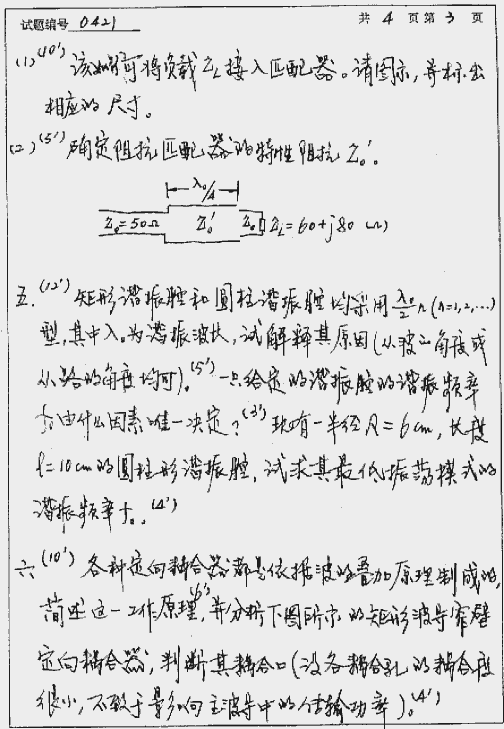 试题编号 0421 共 4 页第 3 页
(1)(10') 该如何可将负载 Z_L 接入匹配器。请图示，并标出
相应的尺寸。
(2)(5') 确定阻抗匹配器的特性阻抗 Z_0'.
λ_0/4
Z_0=50Ω Z_0' Z_0 Z_L=60+j80 (Ω)
五.(12') 矩形谐振腔和圆柱谐振腔均采用 λ_0/2 n (n=1,2,…)
型，其中 λ_0 为谐振波长，试解释其原因(从波的角度或
从路的角度均可)。(5') 一只给定的谐振腔的谐振频率
f_0 由什么因素唯一决定？(3') 现有一半径 R=6cm，长度
l=10cm 的圆柱形谐振腔，试求其最低振荡模式的
谐振频率 f_0。(4')
六(10') 各种定向耦合器都是依据波的叠加原理制成的，
简述这一工作原理，(6') 并分析下图所示的矩形波导窄壁
定向耦合器，判断其耦合口(设各耦合孔的耦合度
很小，不致于影响主波导中的传输功率)。(4')